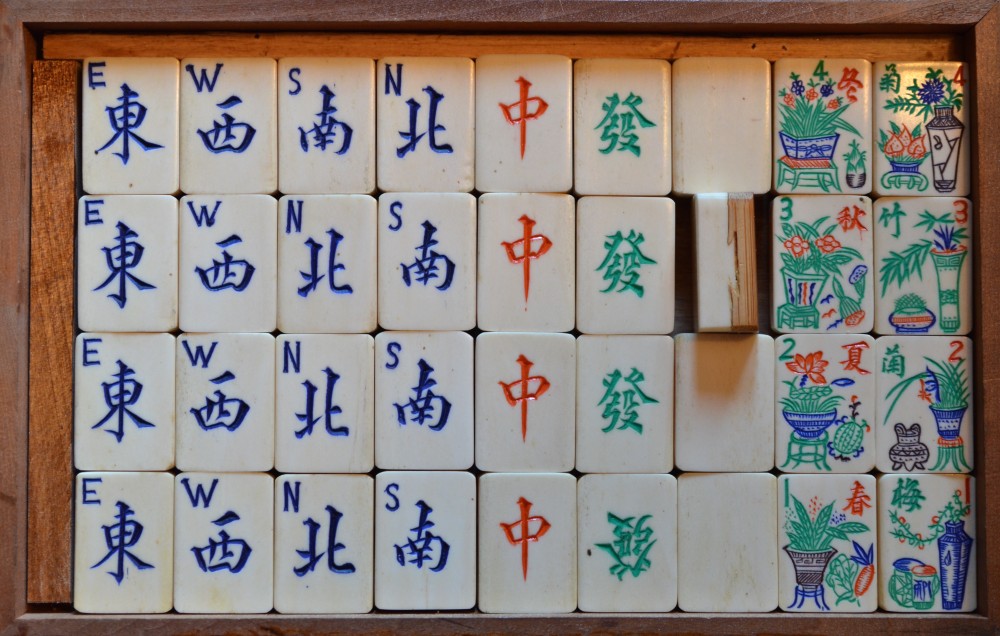 E 東 W 西 S 南 N 北 中 發 4 冬 菊 4
E 東 W 西 N 北 S 南 中 發 3 秋 竹 3
E 東 W 西 N 北 S 南 中 發 2 夏 蘭 2
E 東 W 西 N 北 S 南 中 發 1 春 梅 1